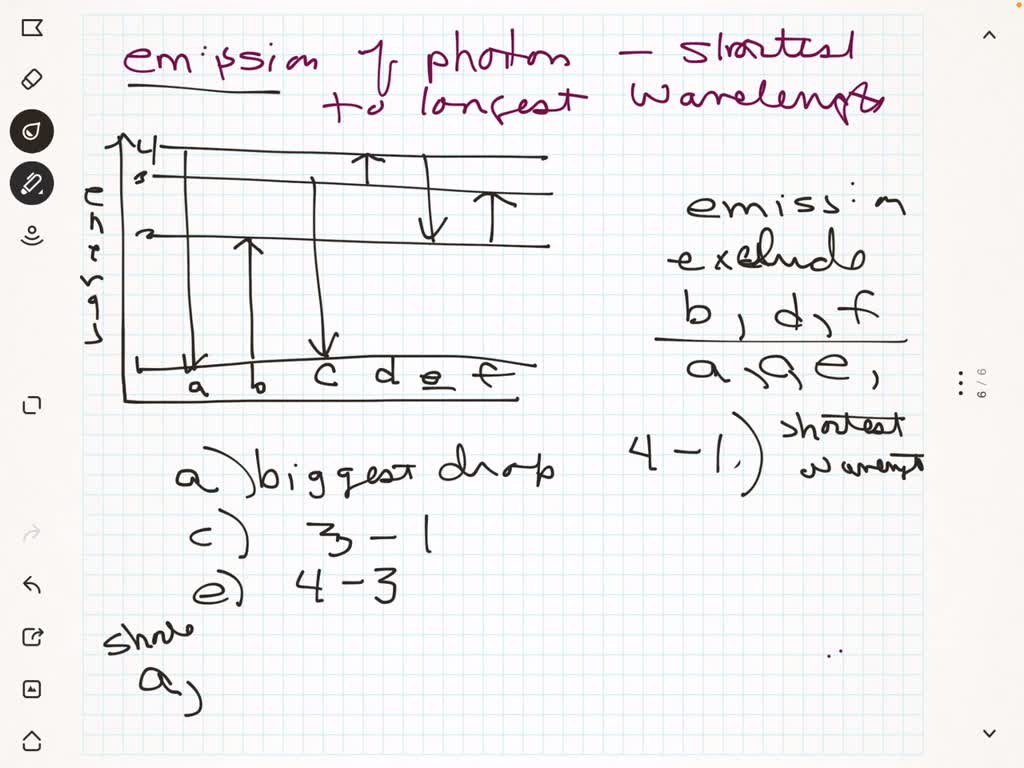 emission of photon – shortest
to longest wavelength
4
3
2
1
energy
a b c d e f
emission
exclude
b, d, f
a, c, e,
a) biggest drop
4 – 1.) shortest
c) 3 – 1
e) 4 – 3
a,
6 / 6